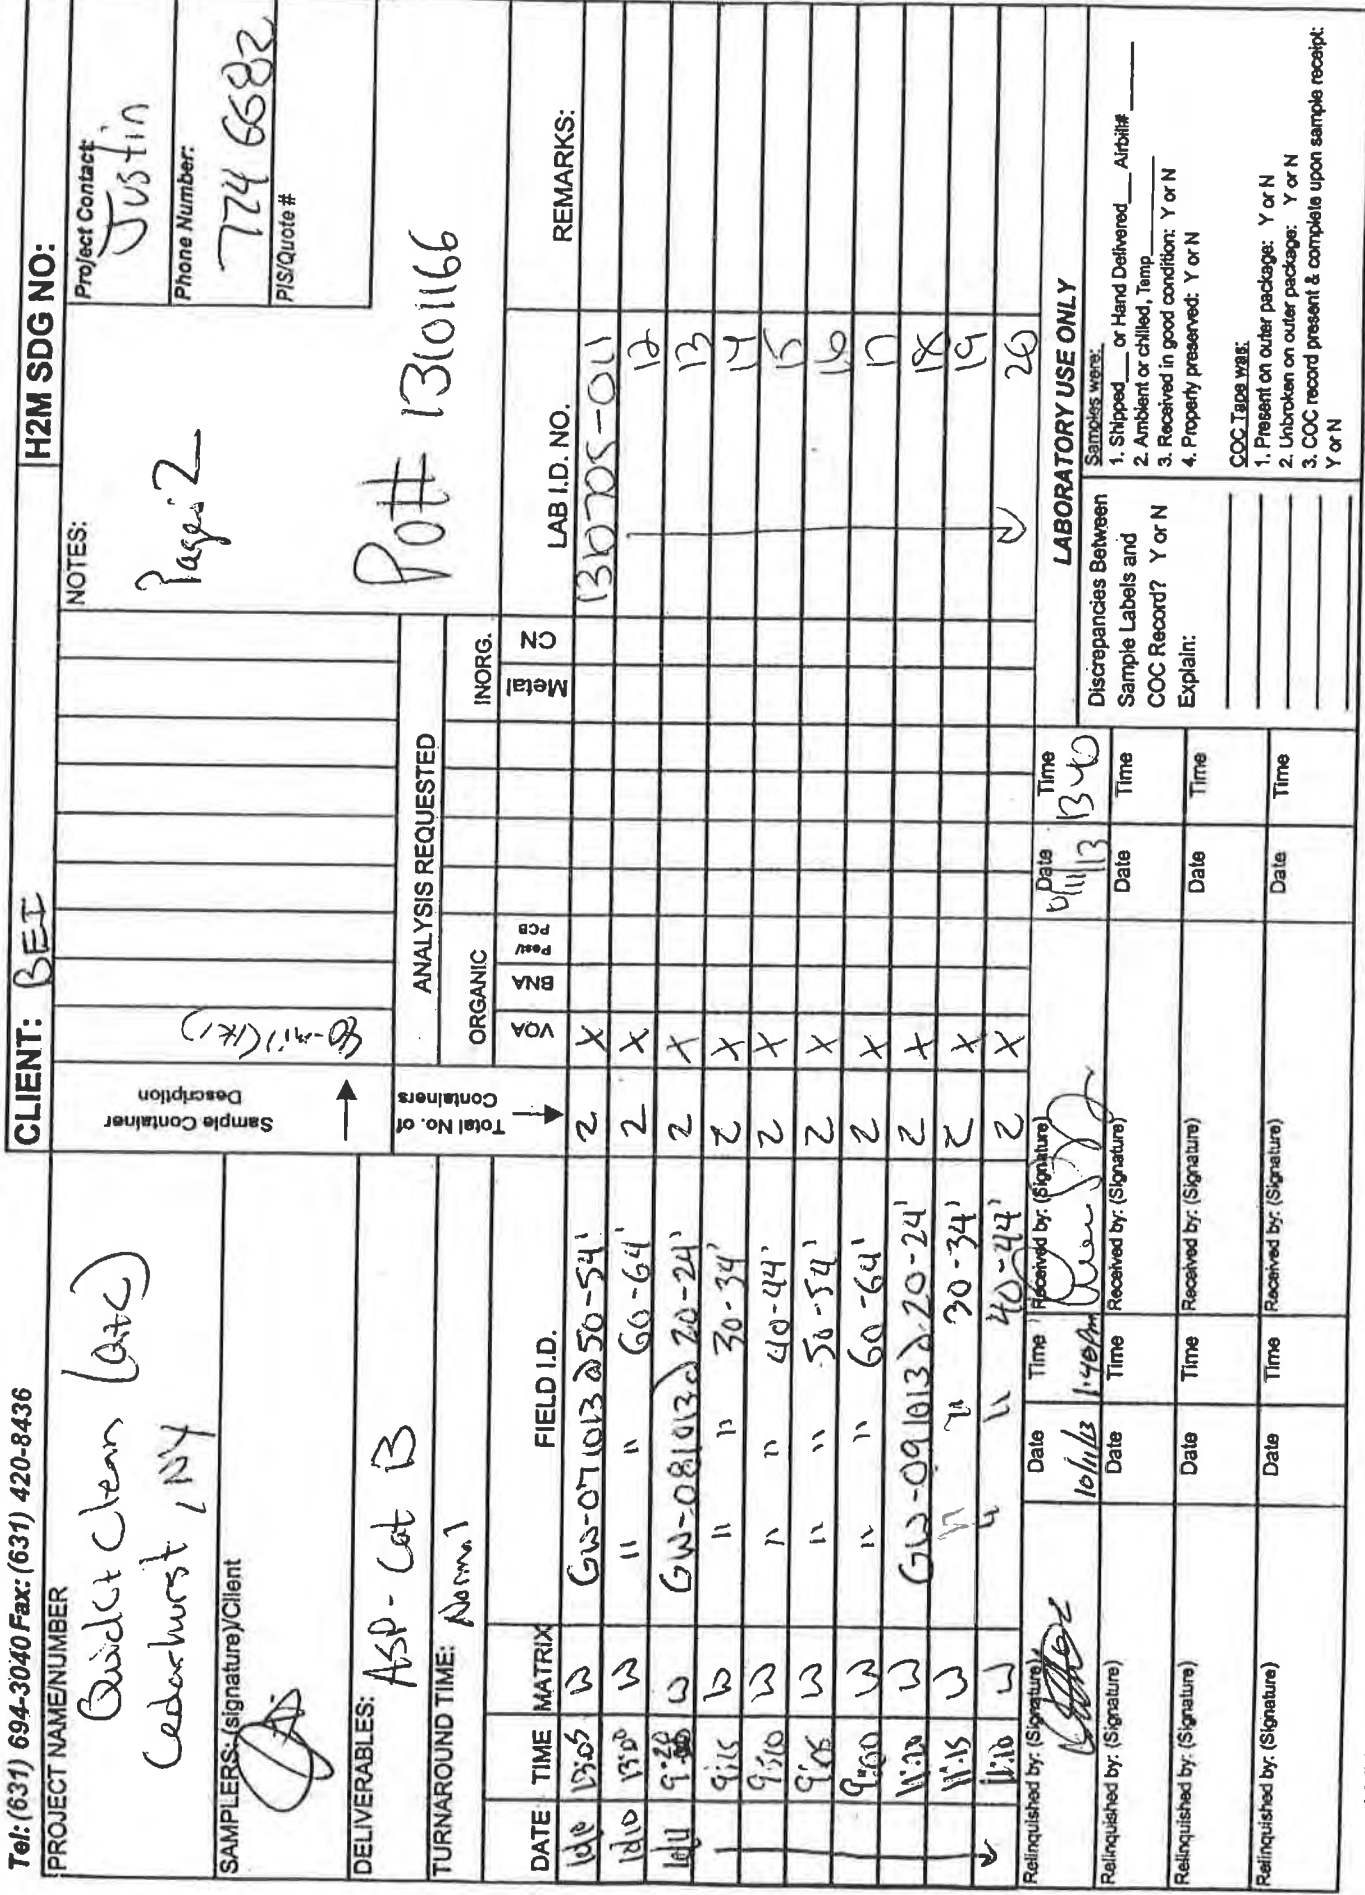 Tel: (631) 694-3040 Fax: (631) 420-8436
CLIENT: BEI
H2M SDG NO:
PROJECT NAME/NUMBER
Quickt Clean (ooc)
Cedarhurst, NY
SAMPLERS: (signature)/Client
DELIVERABLES:
ASP- Cat B
TURNAROUND TIME: Normal
Sample Container
Description
40-mil (HCl)
NOTES:
Page: 2
Project Contact:
Justin
Phone Number:
774 6682
PIS/Quote #
Po# 1301166
Total No. of
Containers
ANALYSIS REQUESTED
ORGANIC INORG.
DATE TIME MATRIX FIELD I.D. VOA BNA Pest/ PCB Metal CN LAB I.D. NO. REMARKS:
10/10 13:05 W GW-071013@50-54' 2 X 1310705-011
10/10 13:00 W " " 60-64' 2 X 12
10/11 9:20 W GW-081013@20-24' 2 X 13
9:15 W " " 30-34' 2 X 14
9:10 W " " 40-44' 2 X 15
9:05 W " " 50-54' 2 X 16
9:00 W " " 60-64' 2 X 17
11:20 W GW-091013@20-24' 2 X 18
11:15 W " " 30-34' 2 X 19
11:10 W " " 40-44' 2 X 20
Relinquished by: (Signature) Date Time Received by: (Signature) Date Time
10/11/13 1:40pm 10/11/13 1340
Relinquished by: (Signature) Date Time Received by: (Signature) Date Time
Relinquished by: (Signature) Date Time Received by: (Signature) Date Time
Relinquished by: (Signature) Date Time Received by: (Signature) Date Time
LABORATORY USE ONLY
Discrepancies Between
Sample Labels and
COC Record? Y or N
Explain:
Samples were:
1. Shipped___ or Hand Delivered___ Airbill#______
2. Ambient or chilled, Temp______
3. Received in good condition: Y or N
4. Properly preserved: Y or N
COC Tape was:
1. Present on outer package: Y or N
2. Unbroken on outer package: Y or N
3. COC record present & complete upon sample receipt:
Y or N